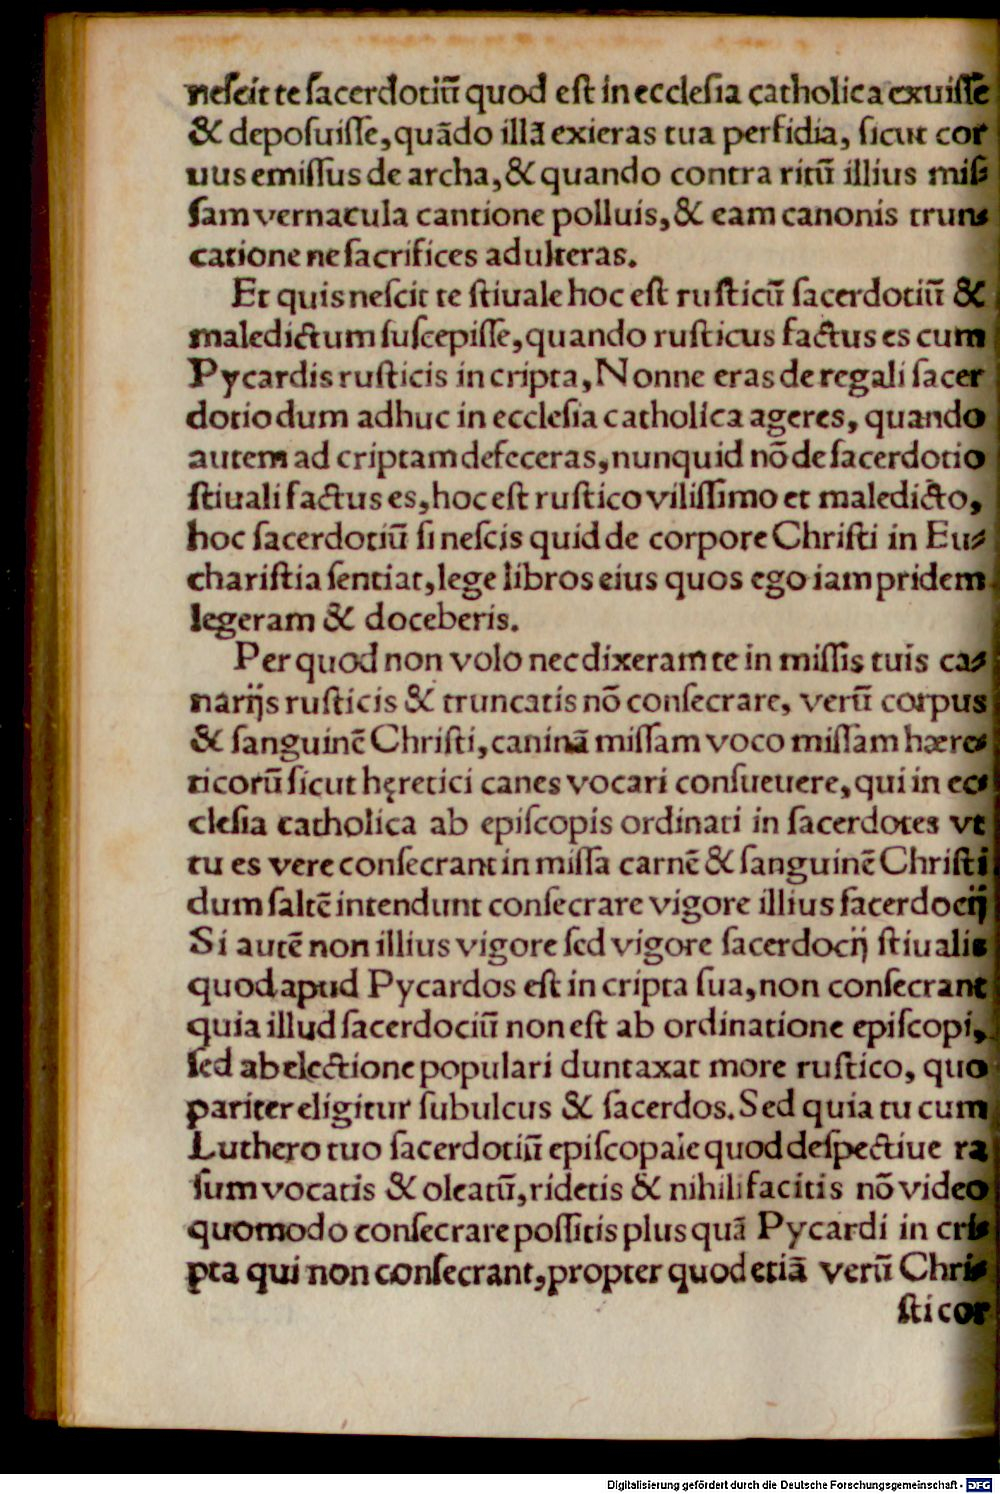 neſcit te ſacerdotiũ quod eſt in eccleſia catholica exuiſſe
& depoſuiſſe, quãdo illã exieras tua perfidia, ſicut cor
uus emiſſus de archa, & quando contra ritũ illius miſ⸗
ſam vernacula cantione polluis, & eam canonis trun⸗
catione ne ſacrifices adulteras.
Et quis neſcit te ſtiuale hoc eſt ruſticũ ſacerdotiũ &
maledictum ſuſcepiſſe, quando ruſticus factus es cum
Pycardis ruſticis in cripta, Nonne eras de regali ſacer
dotio dum adhuc in eccleſia catholica ageres, quando
autem ad criptam defeceras, nunquid nõ de ſacerdotio
ſtiuali factus es, hoc eſt ruſtico viliſſimo et maledicto,
hoc ſacerdotiũ ſi neſcis quid de corpore Chriſti in Eu⸗
chariſtia ſentiat, lege libros eius quos ego iam pridem
legeram & doceberis.
Per quod non volo nec dixeram te in miſſis tuis ca⸗
narijs ruſticis & truncatis nõ conſecrare, verũ corpus
& ſanguinẽ Chriſti, caninã miſſam voco miſſam hære⸗
ticorũ ſicut hęretici canes vocari conſueuere, qui in ec⸗
cleſia catholica ab epiſcopis ordinati in ſacerdotes vt
tu es vere conſecrant in miſſa carnẽ & ſanguinẽ Chriſti
dum ſaltẽ intendunt conſecrare vigore illius ſacerdocij
Si autẽ non illius vigore ſed vigore ſacerdocij ſtiualis
quod apud Pycardos eſt in cripta ſua, non conſecrant
quia illud ſacerdociũ non eſt ab ordinatione epiſcopi,
ſed ab electione populari duntaxat more ruſtico, quo
pariter eligitur ſubulcus & ſacerdos. Sed quia tu cum
Luthero tuo ſacerdotiũ epiſcopale quod deſpectiue ra
ſum vocatis & oleatũ, ridetis & nihili facitis nõ video
quomodo conſecrare poſſitis plus quã Pycardi in cri⸗
pta qui non conſecrant, propter quod etiã verũ Chri⸗
ſti cor
Digitalisierung gefördert durch die Deutsche Forschungsgemeinschaft - DFG